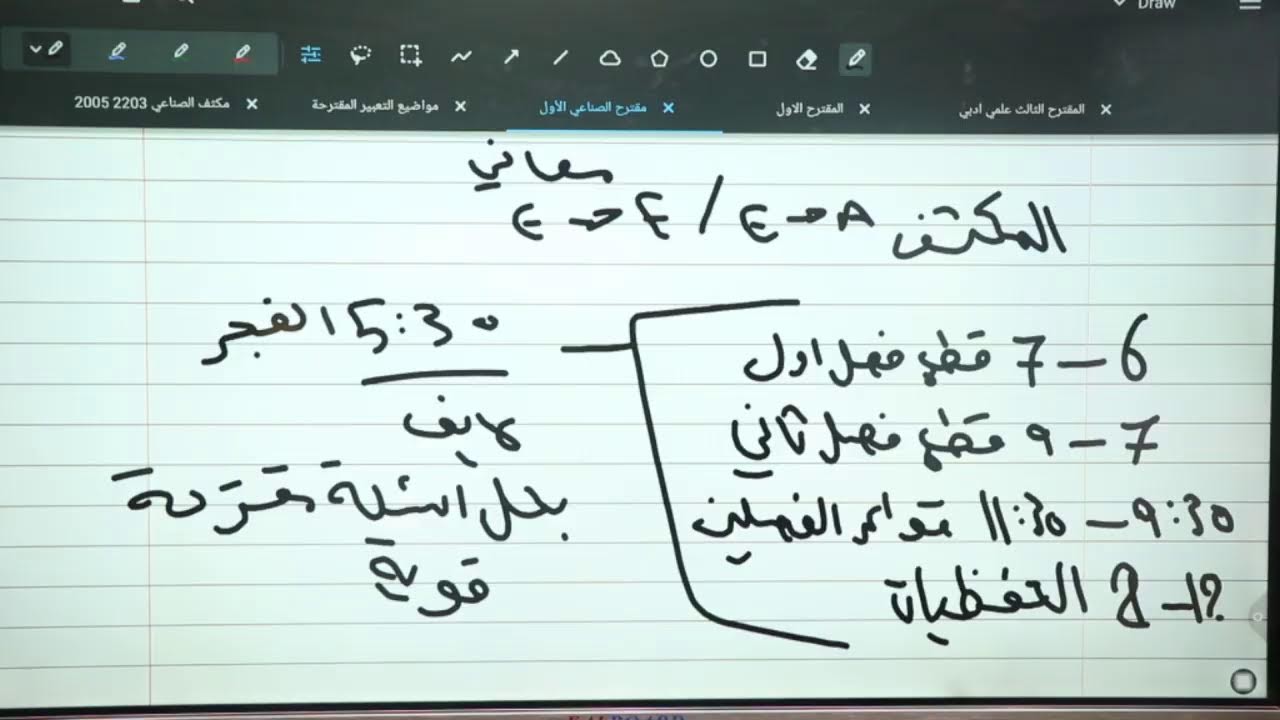 Draw
المقترح الثالث علمي ادبي
المقترح الاول
مقترح الصناعي الأول
مواضيع التعبير المقترحة
مكثف الصناعي 2203 2005
معاني
المكثف E→A / E→E
6 – 7 قطع فصل اول
7 – 9 قطع فصل ثاني
9:30 – 11:30 قواعد الفصلين
12 – 2 التحفظيات
5:30 الفجر
لايف
بحل اسئلة مقترحة
قوية